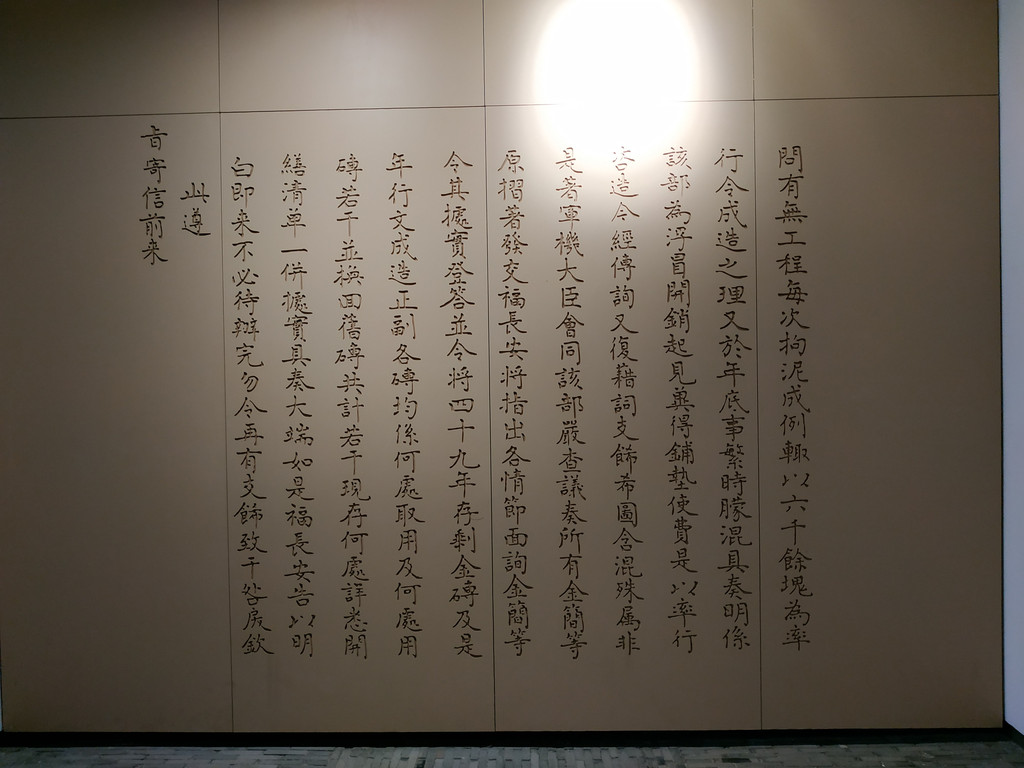 問有無工程每次拘泥成例輙以六千餘塊為率
行令成造之理又於年底事繁時朦混具奏明係
該部為浮冒開銷起見兾得鋪墊使費是以率行
咨造今經傳詢又復藉詞支飾希圖含混殊属非
是著軍機大臣會同該部嚴查議奏所有金簡等
原摺著發交福長安將指出各情節面詢金簡等
令其據實登答並令将四十九年存剩金磚及是
年行文成造正副各磚均係何處取用及何處用
磚若干並換回舊磚共計若干現存何處詳悉開
繕清单一併據實具奏大端如是福長安告以明
白即来不必待辦完勿令再有支飾致干咎戾欽
此遵
旨寄信前来